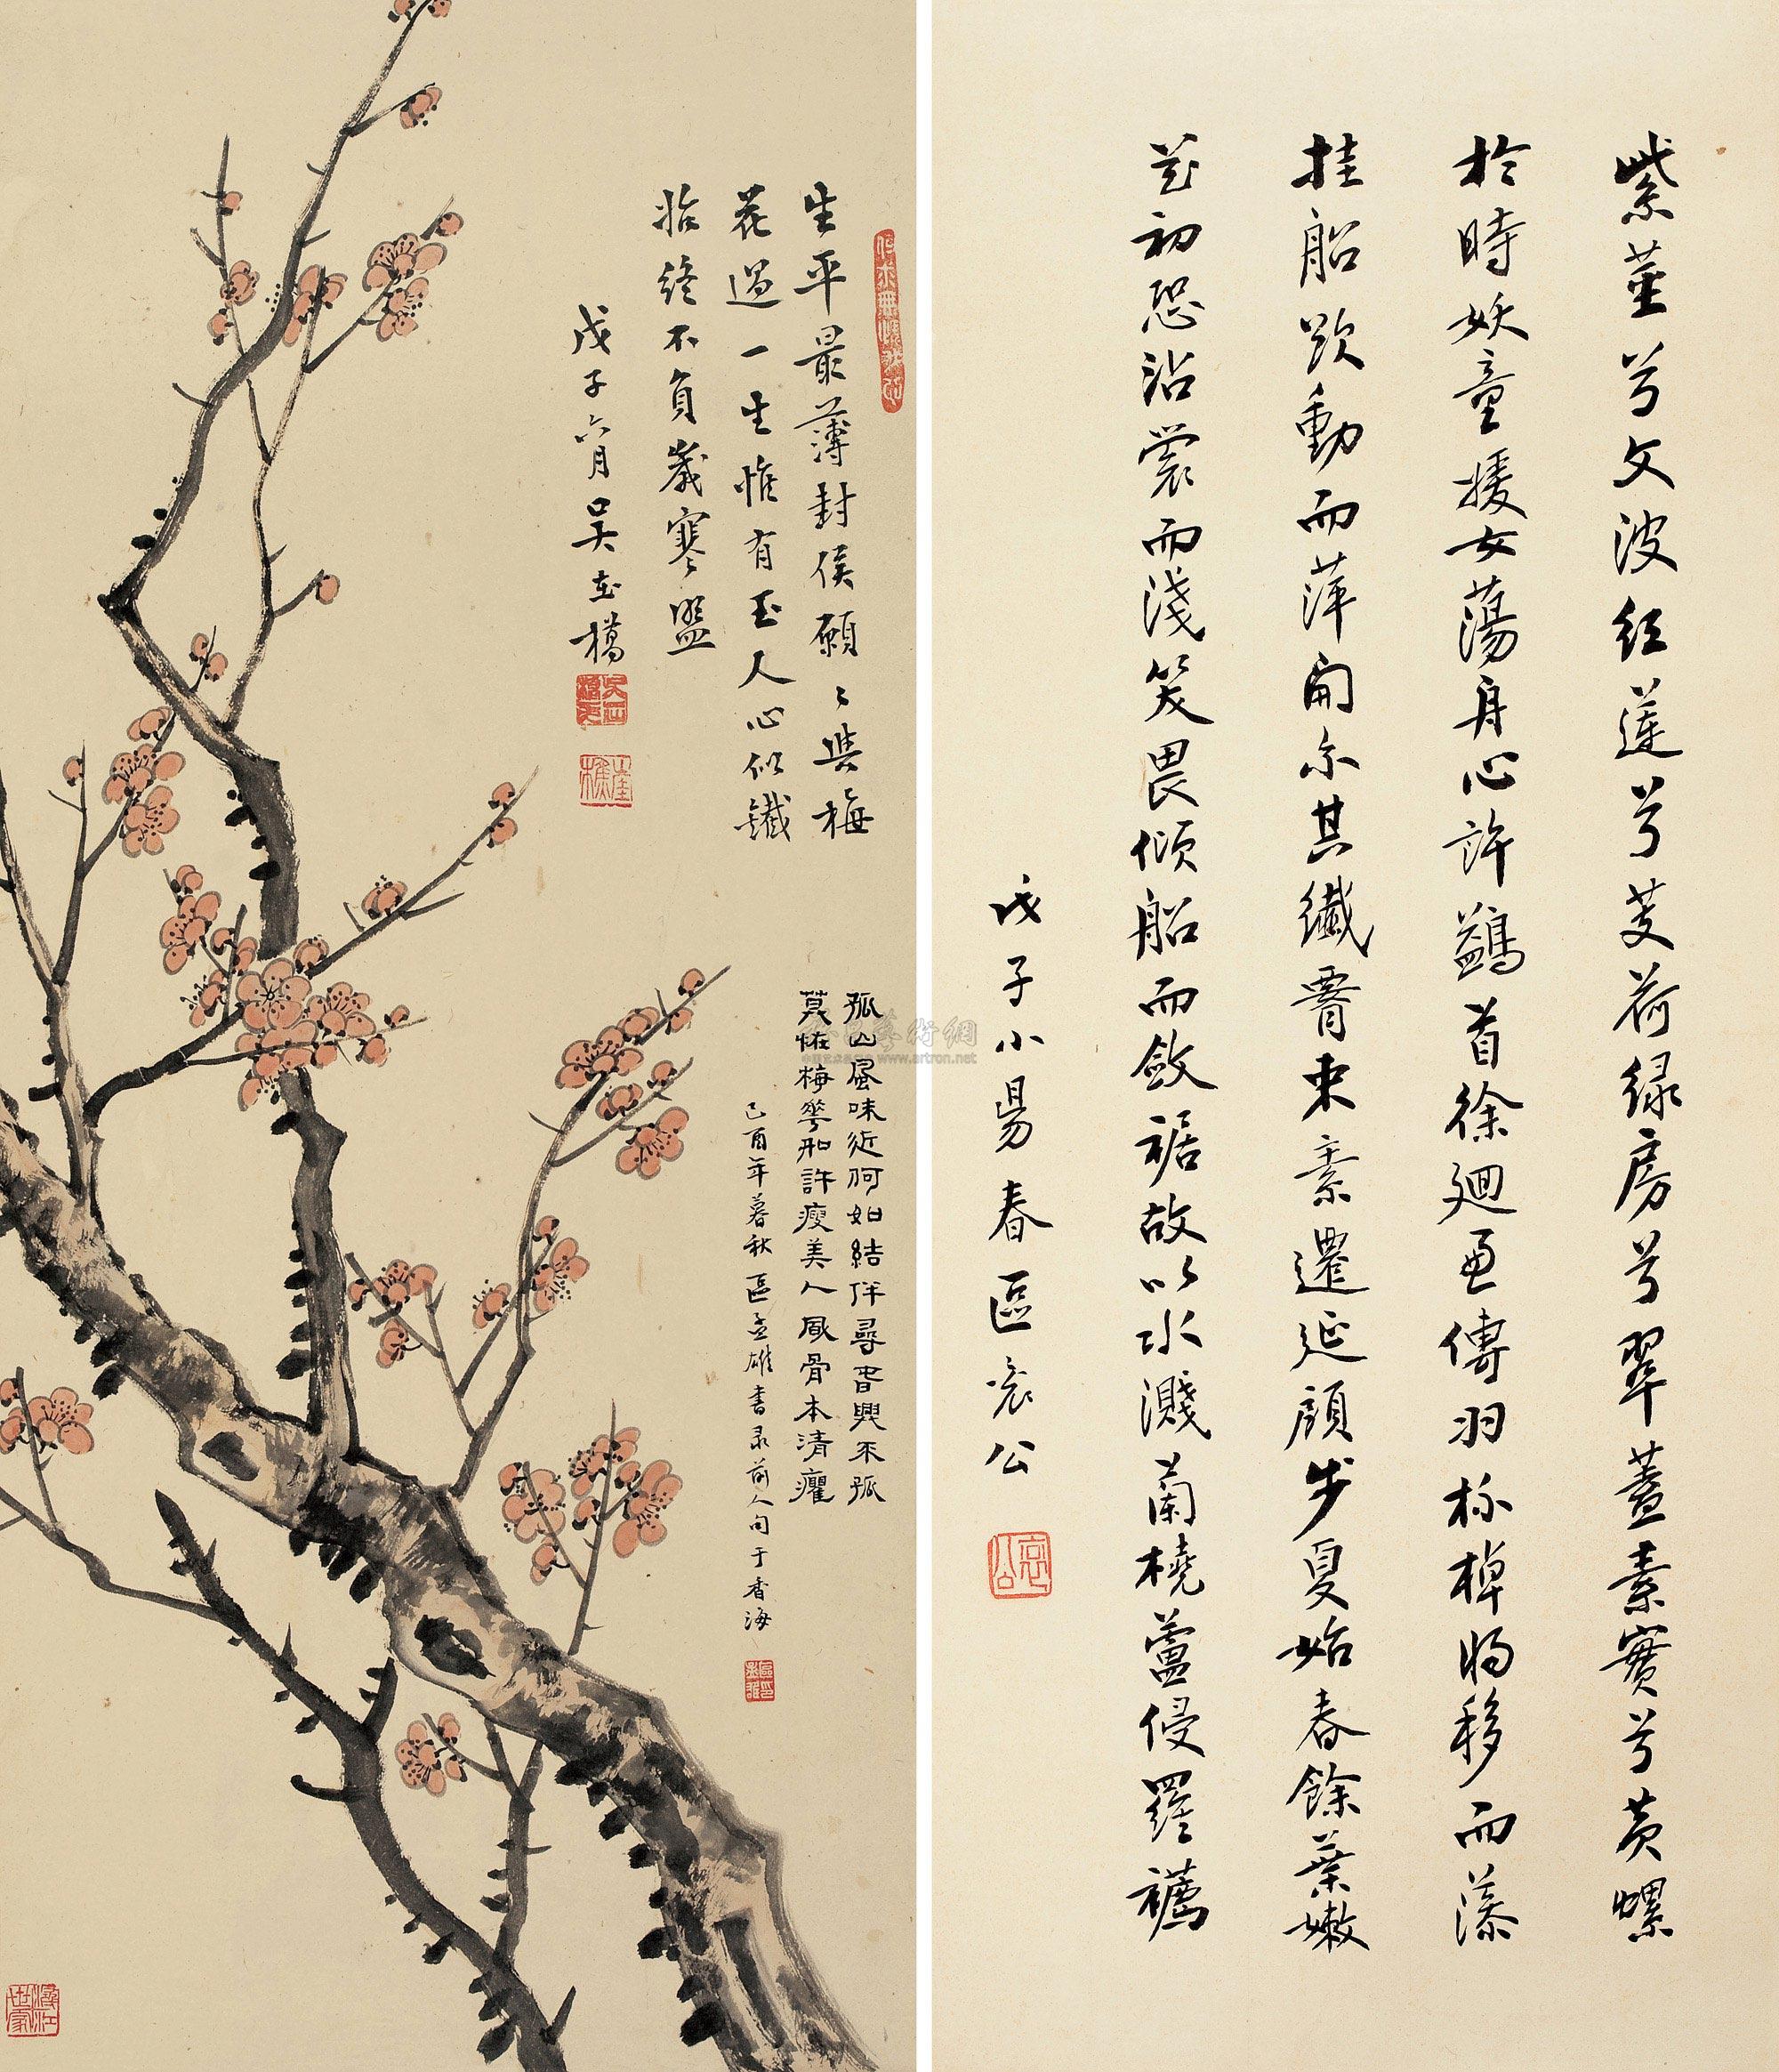 紫莖兮文波紅蓮兮芰荷綠房兮翠蓋素實兮黃螺
於時妖童媛女蕩舟心許鷁首徐廻兼傳羽杯棹將移而藻
挂船欲動而萍開尔其纖腰束素遷延顧步夏始春餘葉嫩
花初恐沾裳而淺笑畏傾船而斂裾故以水濺蘭橈蘆侵羅襜
戊子小昜春區衮公
生平最薄封侯願〻與梅
花過一生惟有玉人心似鐵
始終不負歲寒盟
戊子六月吳在橋
孤山風味近何如結伴尋春興不孤
莫恠梅花如許瘦美人風骨本清癯
己酉年暮秋區孟雄書录前人句于香海
崖樵
www.artron.net